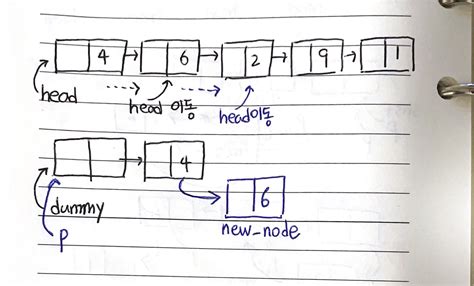 4 6 2 9 1
head head 이동 head이동
4
6
dummy
p
new_node